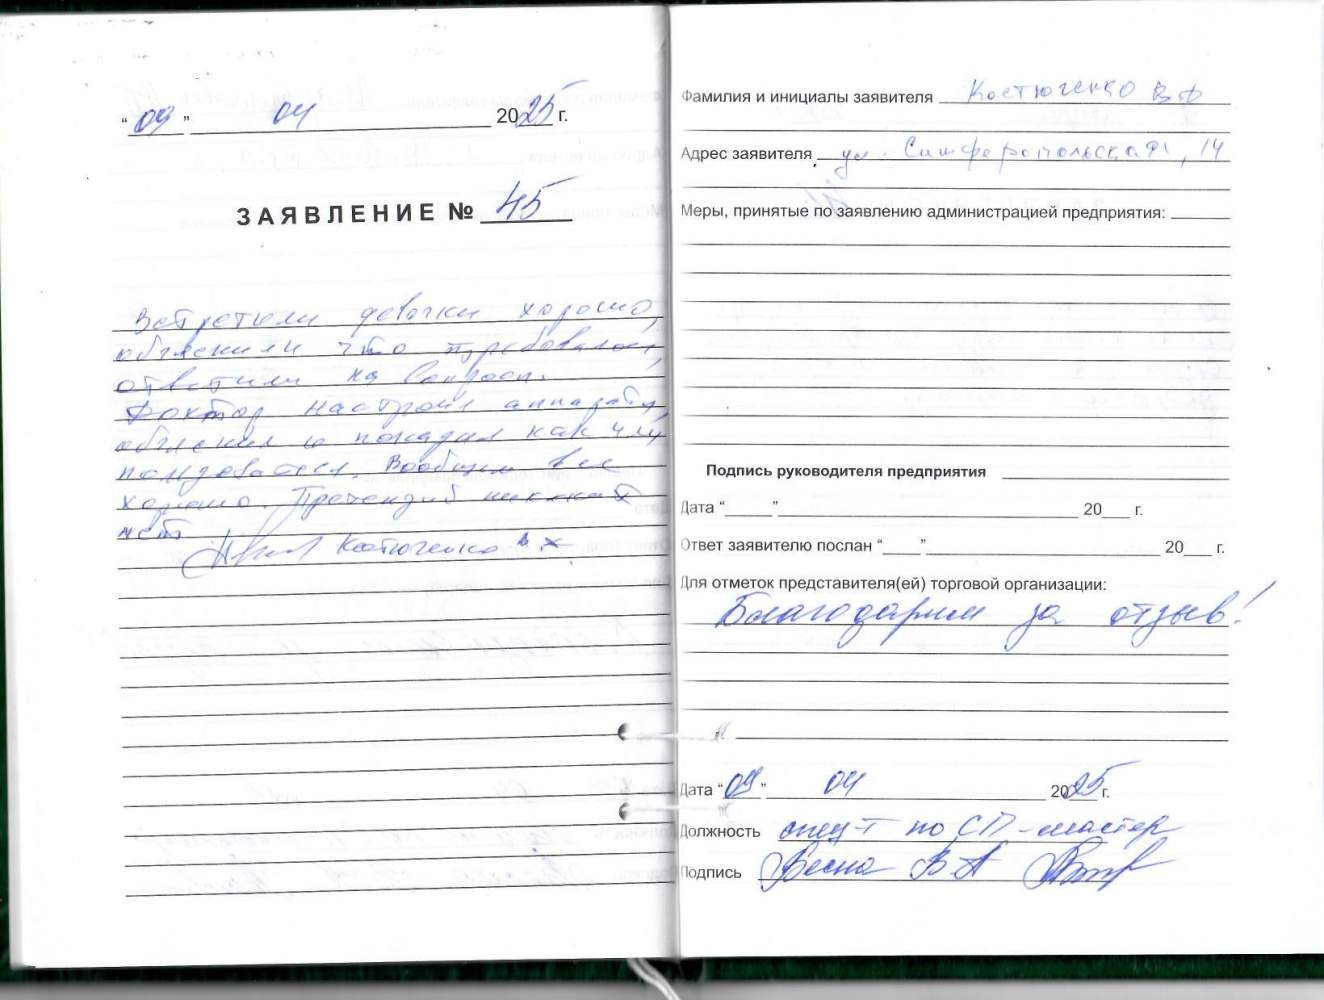 “09” 04 2025 г.
ЗАЯВЛЕНИЕ № 45
Встретили девочки хорошо,
объяснили что требовалось,
ответили на вопросы.
Доктор настроил аппараты,
объяснил и показал как ими
пользоваться. Вообщем все
хорошо. Претензий никаких
нет
Костюченко В.
Фамилия и инициалы заявителя Костюченко В Ф
Адрес заявителя ул. Симферопольская, 14
Меры, принятые по заявлению администрацией предприятия:
Подпись руководителя предприятия
Дата “ ” 20 г.
Ответ заявителю послан “ ” 20 г.
Для отметок представителя(ей) торговой организации:
Благодарим за отзыв!
Дата “09” 04 2025 г.
Должность спец-т по СП-мастер
Подпись Весна В А